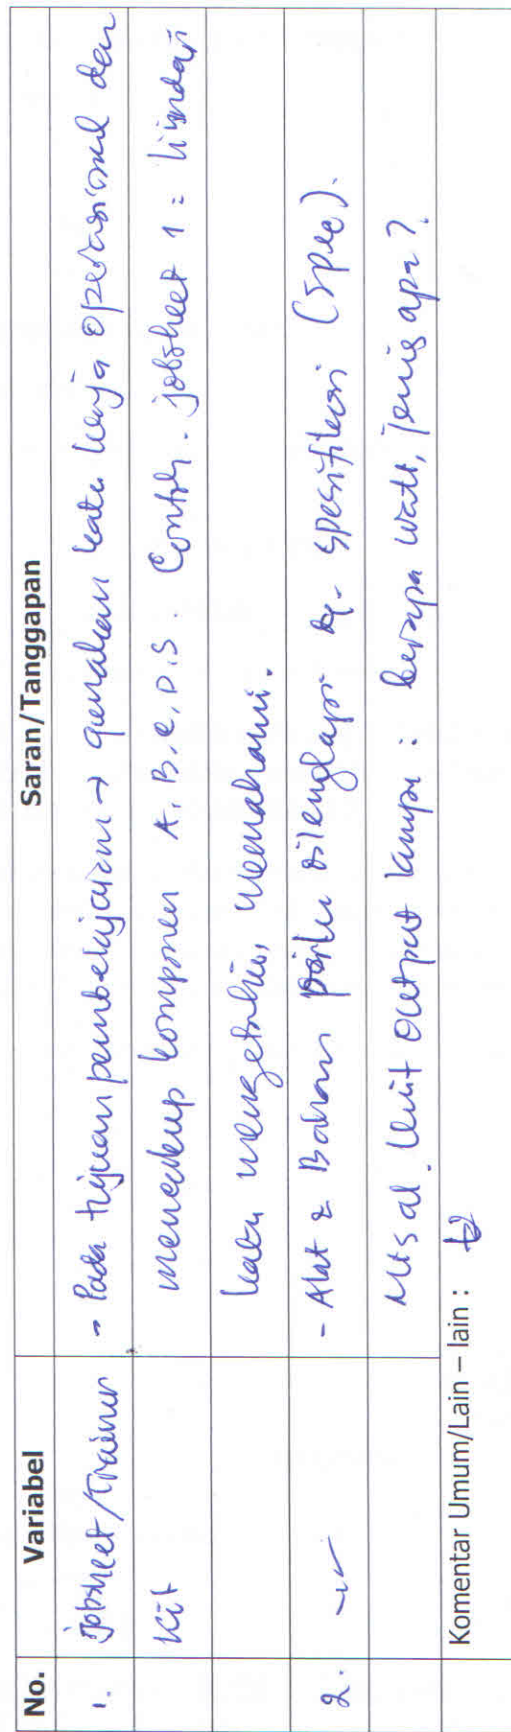 No. Variabel Saran/Tanggapan
1. Jobsheet/Trainer → Pada tujuan pembelajaran → gunakan kata kerja operasional dan
Kit mencakup komponen A, B, C, D, S. Contoh. jobsheet 1 = hindari
kata mengetahui, memahami.
2. - Alat & Bahan perlu dilengkapi dg. spesifikasi (spec).
Misal. Unit output lampu : berapa watt, jenis apa?
Komentar Umum/Lain – lain :